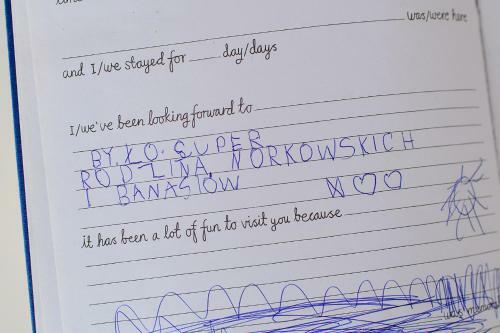 was/were here
and I/we stayed for day/days
I/we've been looking forward to
BYŁO. SUPER
RODZINA NORKOWSKICH
I BANASIÓW
it has been a lot of fun to visit you because